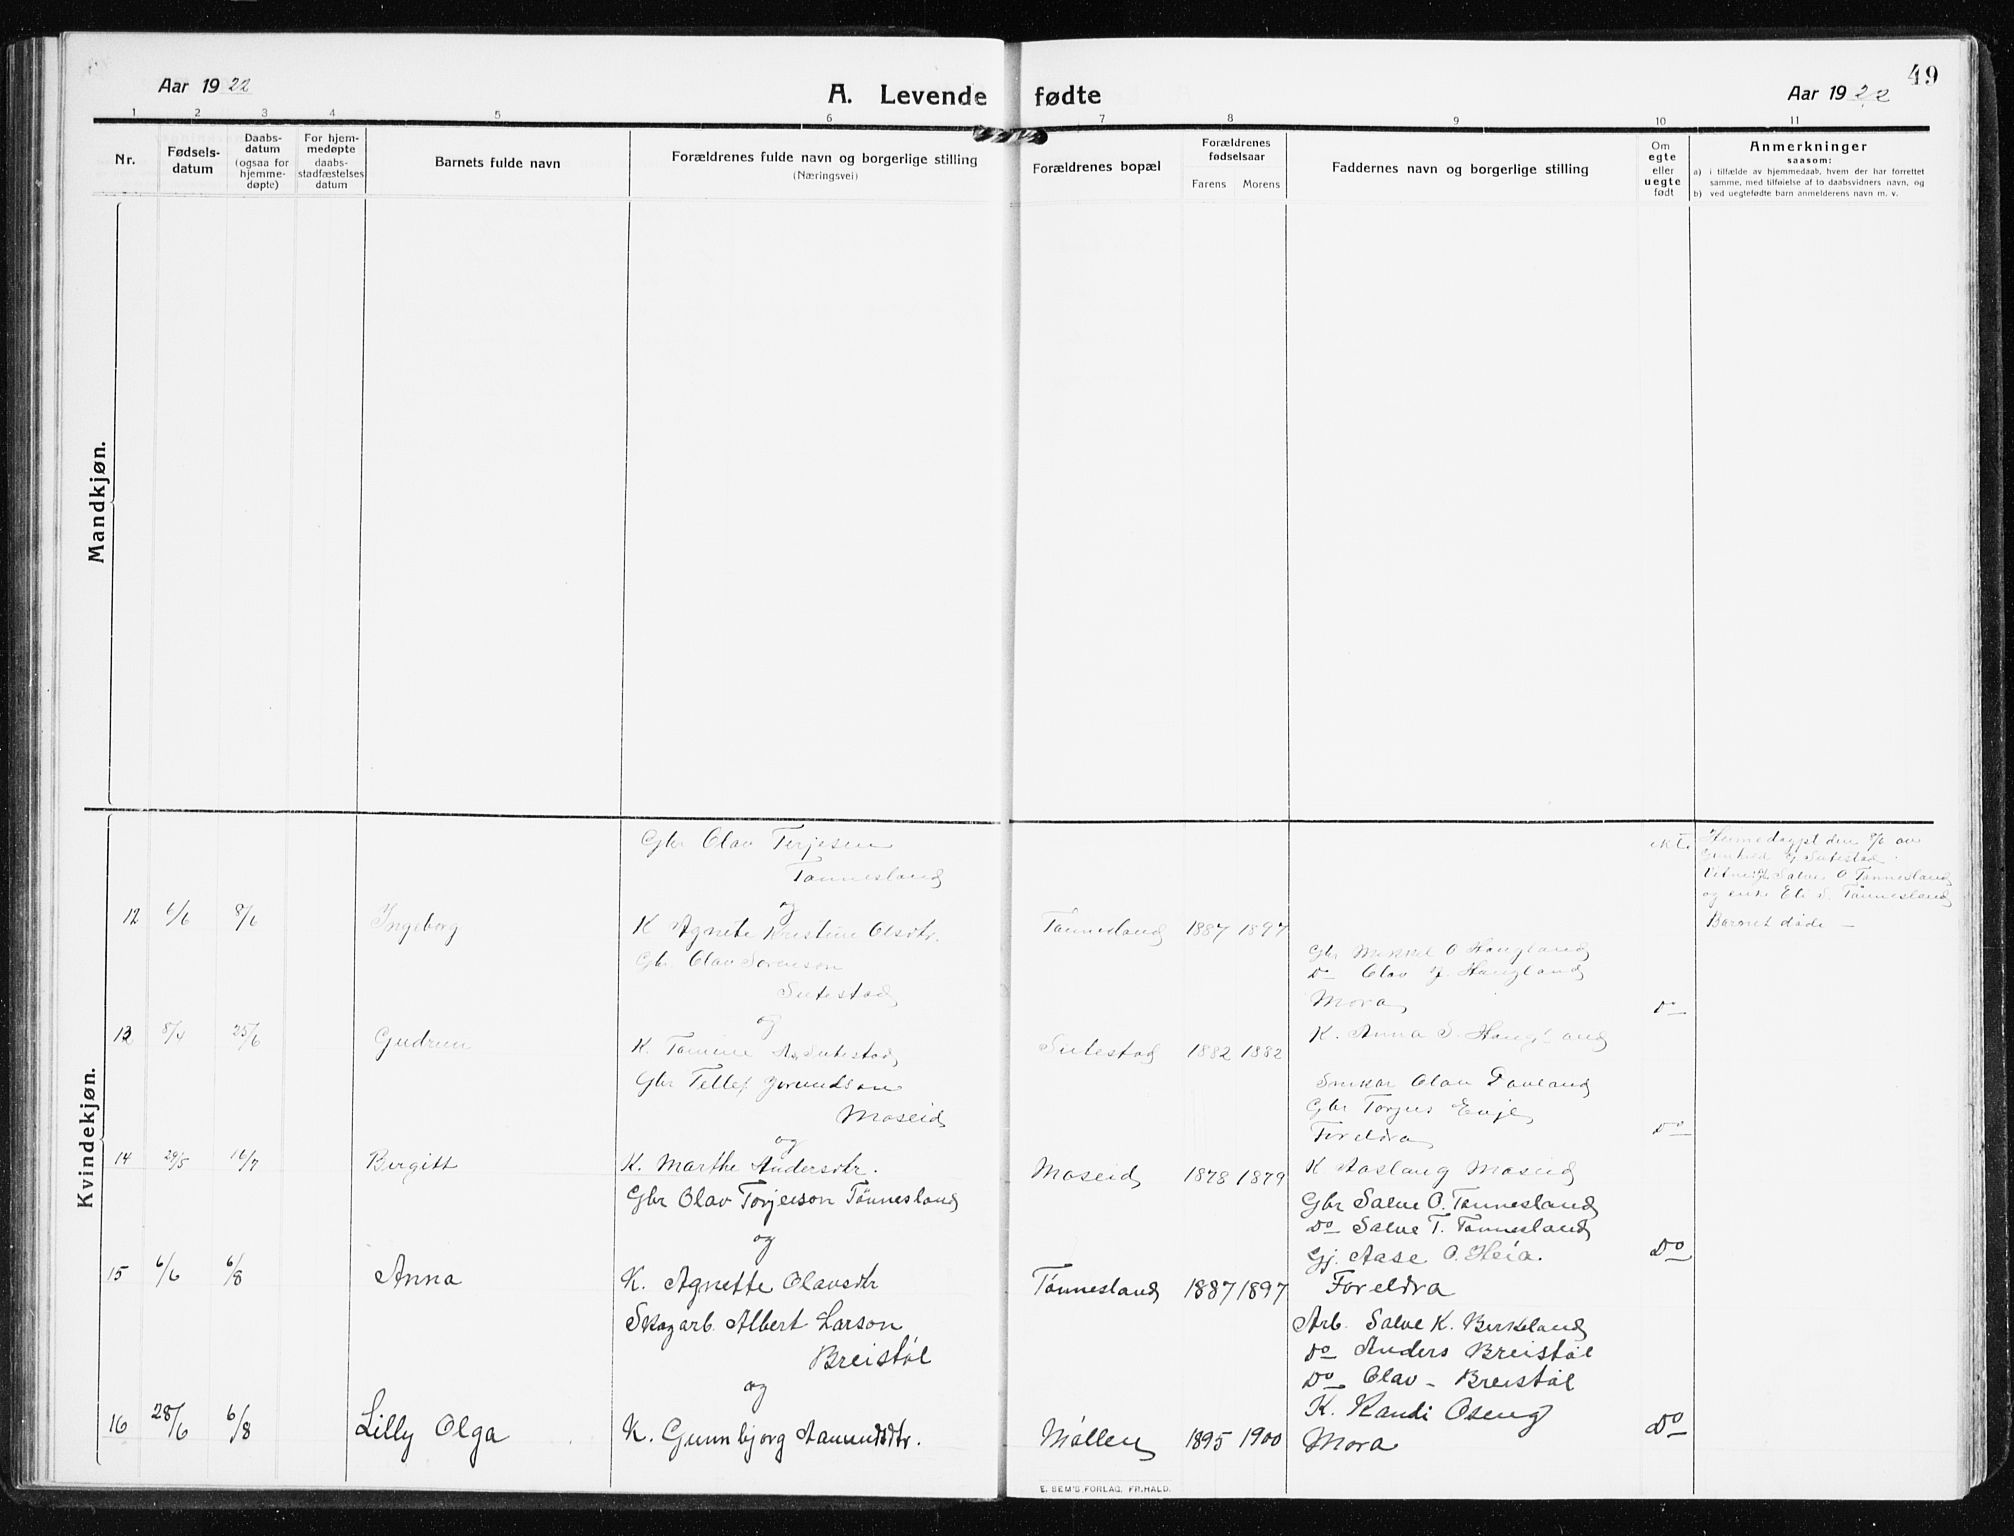 49
Aar 1922
A. Levende fødte
Aar 1922
1 2 3 4 5 6 7 8 9 10 11
Nr.
Fødsels-
datum
Daabs-
datum
(ogsaa for
hjemme-
døpte)
For hjem-
medøpte
daabs-
stadfæstelses
datum
Barnets fulde navn
Forældrenes fulde navn og borgerlige stilling
(Næringsvei)
Forældrenes bopæl
Forældrenes
fødselsaar
Farens Morens
Faddernes navn og borgerlige stilling
Om
egte
eller
uegte
født
Anmerkninger
saasom:
a) i tilfælde av hjemmedaab, hvem der har forrettet
samme, med tilføielse af to daabsvidners navn, og
b) ved uegtefødte barn anmelderens navn m. v.
Mandkjøn.
Kvindekjøn.
Gbr Olav Terjesen
Tønnesland
og
12 6/6 8/6 Ingeborg K Agnete Kristine Olsdtr. Tønnesland 1887 1897
ekte
Heimedøypt den 8/6 av
Sutestad
Vitne: Salve O Tønnesland
og enke Eli S. Tønnesland
Barnet døde —
Gbr Olav Sørenson
Sutestad
og
13 8/4 25/6 Gudrun K. Tomine A. Sutestad Sutestad 1882 1882
Gbr Mikkel O Haugland
Do Olav Haugland
Mora
K. Anna S. Haugland
Do
Gbr Tellef Jorundson
Moseid
og
14 29/5 16/7 Birgitt K. Marthe Andersdtr. Moseid 1878 1879
Snikar Olav Davland
Gbr Torjus Eieje
Foreldra
K Aaslaug Moseid
Do
Gbr Olav Torjerson Tønnesland
og
15 6/6 6/8 Anna K. Agnette Olavsdtr Tønnesland 1887 1897
Gbr Salve O. Tønnesland
Do Salve T. Tønnesland
Gj. Aase O. Heia.
Foreldra
Do
Skogarb. Albert Larson
Breistøl
og
16 28/6 6/8 Lilly Olga K. Gunnbjorg Aamundsdtr. Møllen 1895 1900
Arb. Salve K. Birkeland
Do Anders Breistøl
Do Olav — Breistøl
K. Kandi Oseng
Mora
Do
E. SEM'S FORLAG, FR.HALD.